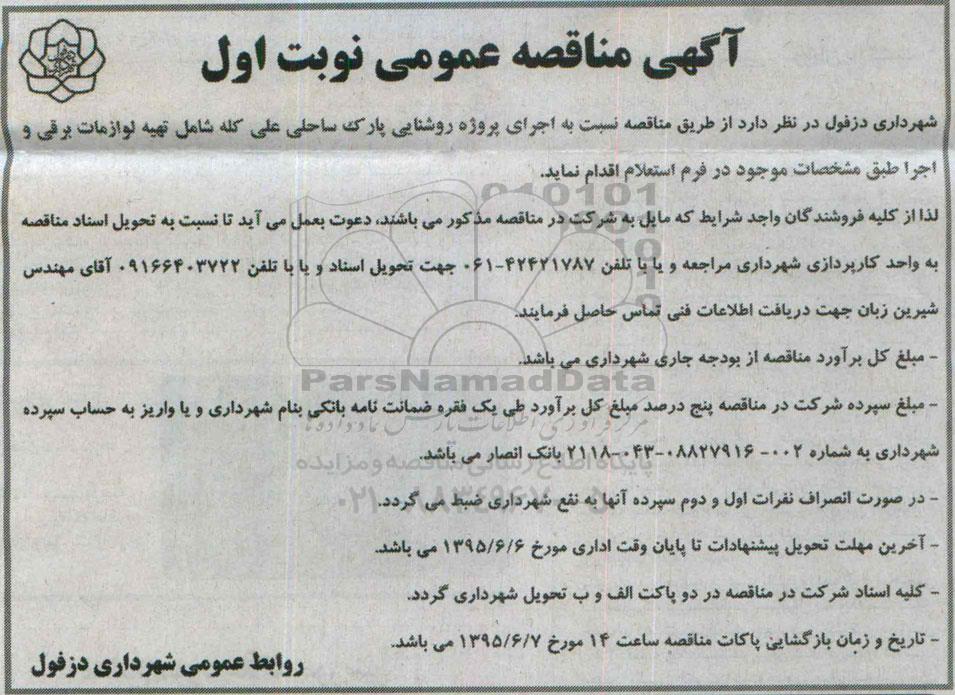 آگهی مناقصه عمومی نوبت اول
شهرداری دزفول در نظر دارد از طریق مناقصه نسبت به اجرای پروژه روشنایی پارک ساحلی علی کله شامل تهیه لوازمات برقی و
اجرا طبق مشخصات موجود در فرم استعلام اقدام نماید.
لذا از کلیه فروشندگان واجد شرایط که مایل به شرکت در مناقصه مذکور می باشند، دعوت بعمل می آید تا نسبت به تحویل اسناد مناقصه
به واحد کارپردازی شهرداری مراجعه و یا با تلفن ۴۲۴۲۱۷۸۷-۰۶۱ جهت تحویل اسناد و یا با تلفن ۰۹۱۶۶۴۰۳۷۲۲ آقای مهندس
شیرین زبان جهت دریافت اطلاعات فنی تماس حاصل فرمایند.
- مبلغ کل برآورد مناقصه از بودجه جاری شهرداری می باشد.
ParsNamadData
- مبلغ سپرده شرکت در مناقصه پنج درصد مبلغ کل برآورد طی یک فقره ضمانت نامه بانکی بنام شهرداری و یا واریز به حساب سپرده
مرکز فرآوری اطلاعات پارس نماد داده ها
شهرداری به شماره ۰۰۲- ۰۸۸۲۷۹۱۶-۰۴۳-۲۱۱۸ بانک انصار می باشد.
پایگاه اطلاع رسانی مناقصه و مزایده
- در صورت انصراف نفرات اول و دوم سپرده آنها به نفع شهرداری ضبط می گردد.
۰۲۱-۸۸۳۴۹۶۷۰-۵
- آخرین مهلت تحویل پیشنهادات تا پایان وقت اداری مورخ ۱۳۹۵/۶/۶ می باشد.
- کلیه اسناد شرکت در مناقصه در دو پاکت الف و ب تحویل شهرداری گردد.
- تاریخ و زمان بازگشایی پاکات مناقصه ساعت ۱۴ مورخ ۱۳۹۵/۶/۷ می باشد.
روابط عمومی شهرداری دزفول